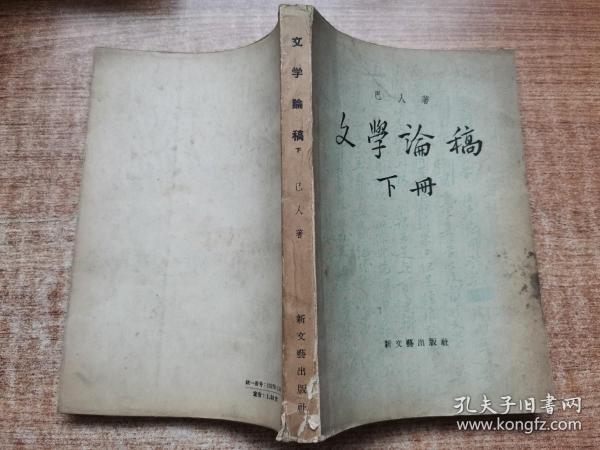 巴人著
文學論稿
下冊
新文藝出版社
文学論稿
下
巴人著
新文藝出版社
統一書号:
定价:
孔夫子旧书网
www.kongfz.com